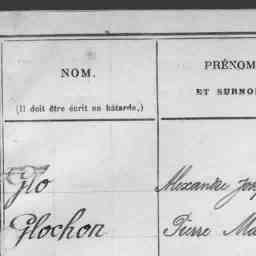 NOM.
(Il doit être écrit en bâtarde.)
PRÉNOM
ET SURNO
Glo
Alexandre
Glochon
Pierre Ma